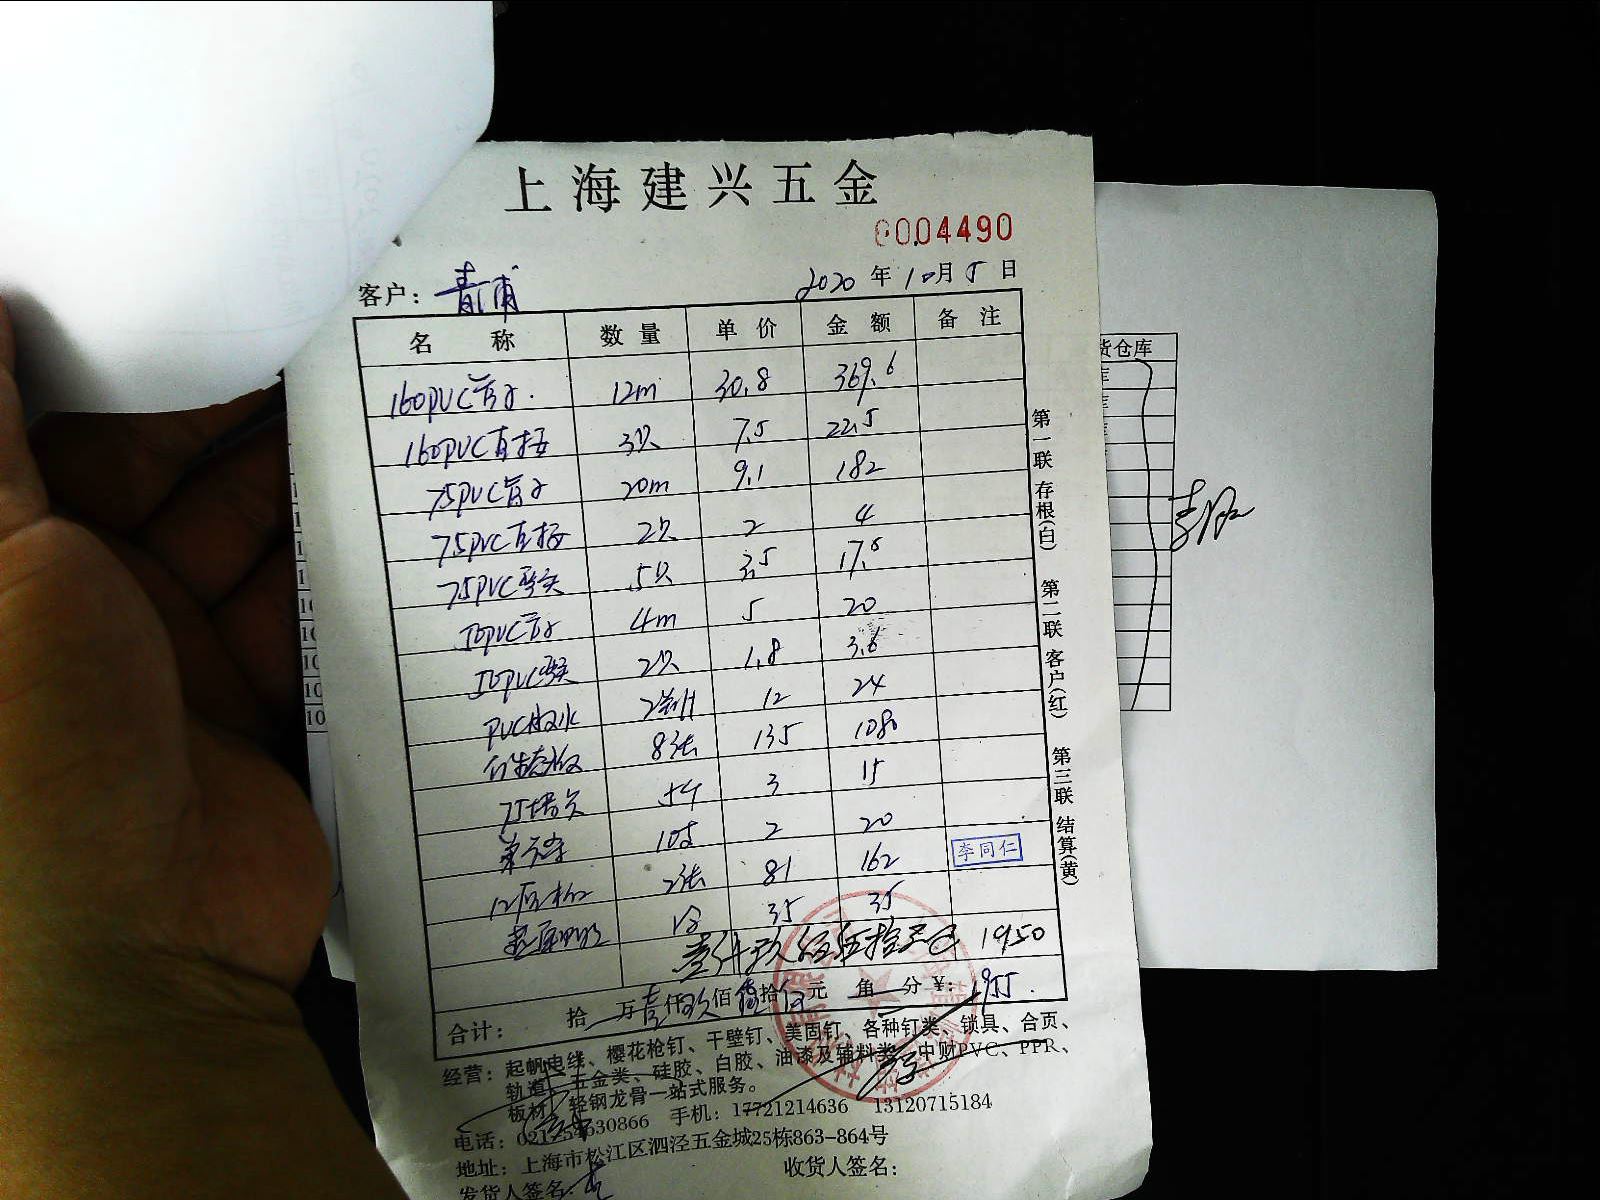 上海建兴五金
0004490
客户: 青浦 2020年10月5日
名称 数量 单价 金额 备注
160PVC管子 12m 30.8 369.6
160PVC直接 3只 7.5 22.5
75PVC管子 20m 9.1 182
75PVC直接 2只 2 4
75PVC弯头 5只 3.5 17.5
50PVC管子 4m 5 20
50PVC弯头 2只 1.8 3.6
PVC胶水 2 12 24
生态板 8张 135 1080
75 5个 3 15
10 2 20
12厘板 2张 81 162
李同仁
1合 35 35
壹仟玖佰伍拾元 1950
合计: 拾万壹仟玖佰伍拾伍元角分¥: 1955.
经营: 起帆电线、樱花枪钉、干壁钉、美固钉、各种钉类、锁具、合页、
轨道、五金类、硅胶、白胶、油漆及辅料类、中财PVC、PPR、
板材、轻钢龙骨一站式服务。
电话: 021-54630866 手机: 17721214636 13120715184
地址: 上海市松江区泗泾五金城25栋863-864号
发货人签名: 收货人签名:
第一联 存根(白) 第二联 客户(红) 第三联 结算(黄)
货仓库